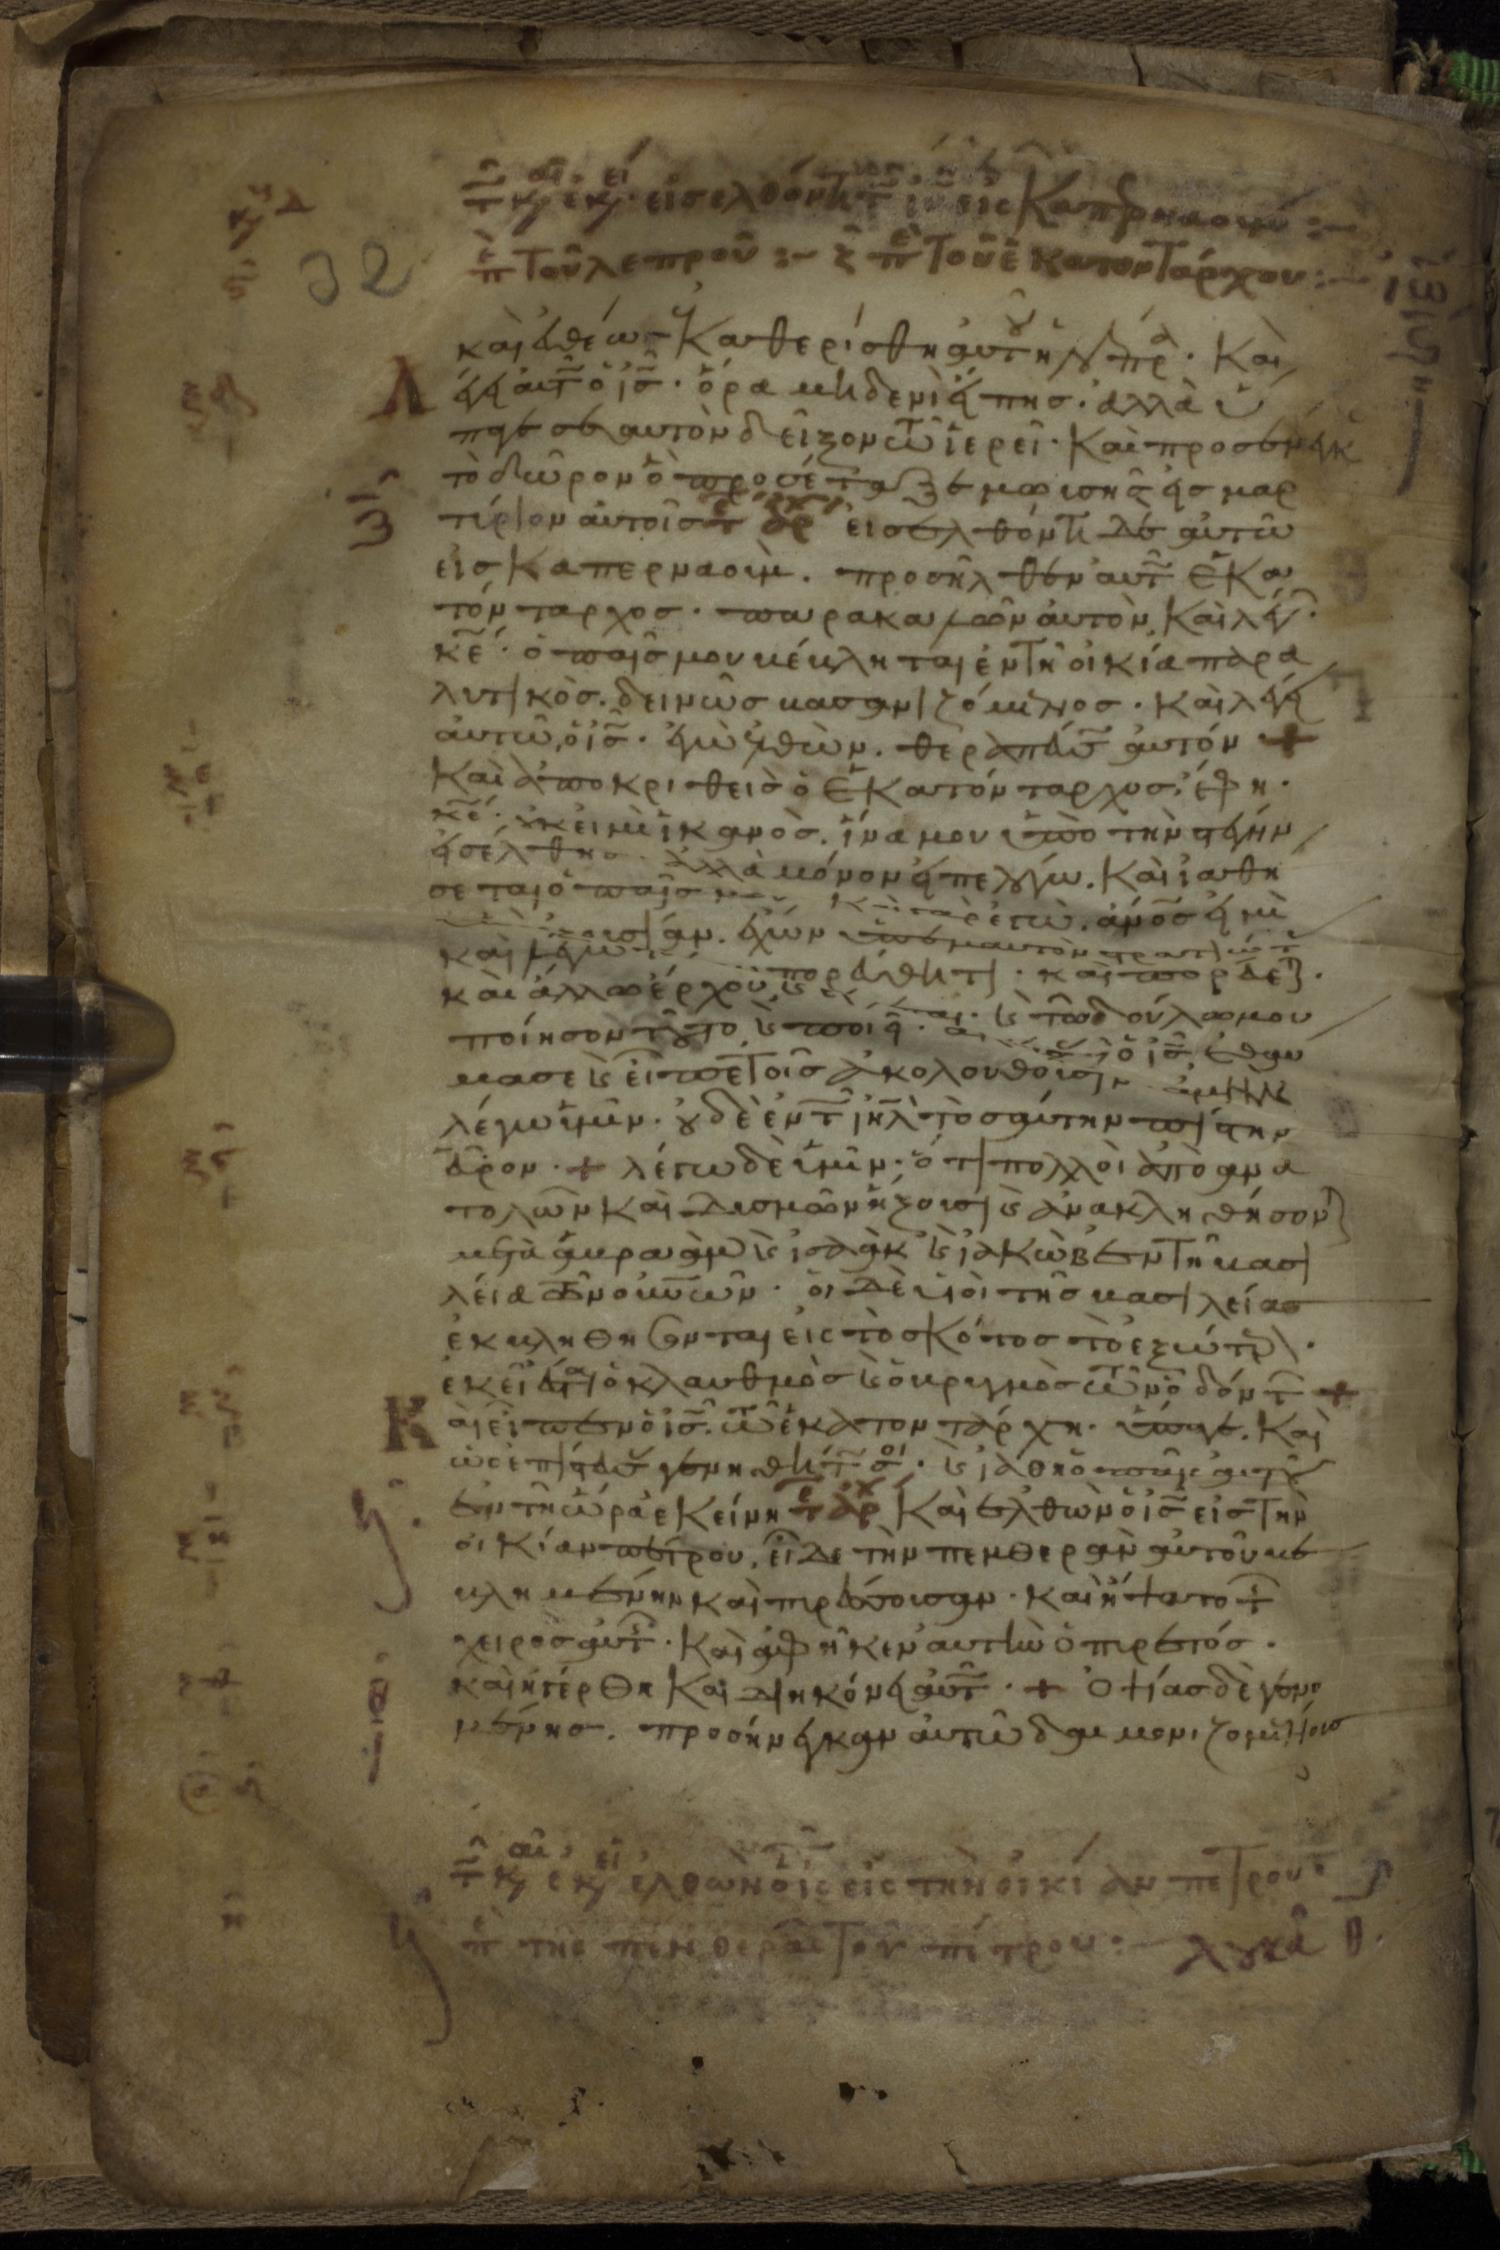 τῷ καιρῷ ἐκείνῳ· εἰσελθόντι τῷ ἰυ εἰς Καπερναούμ :~
π τοῦ λεπροῦ :~ ζ π τοῦ ἑκατοντάρχου :~
32
καὶ εὐθέως ἐκαθερίσθη αὐτοῦ ἡ λέπρα. Καὶ
λέγει αὐτῷ ὁ ις· ὅρα μηδενὶ εἴπης. ἀλλὰ ὕ
παγε σεαυτὸν δεῖξον τῷ ἱερεῖ. Καὶ προσένεγκε
τὸ δῶρον ὃ προσέταξε μωισῆς εἰς μαρ
τύριον αὐτοῖς τε αρχ εἰσελθόντι δὲ αὐτῶ
εἰς Καπερναούμ. προσῆλθεν αὐτῷ ἑκα
τόνταρχος. παρακαλῶν αὐτὸν καὶ λέγων·
κε· ὁ παῖς μου βέβληται ἐν τῆ οἰκία παρα
λυτικὸς. δεινῶς βασανιζόμενος. καὶ λέγει
αὐτῶ ὁ ις. ἐγὼ ἐλθὼν. θεραπεύσω αὐτόν +
Καὶ ἀποκριθεὶς ὁ ἑκατόνταρχος, ἔφη.
κε. οὐκ εἰμὶ ἱκανὸς. ἵνα μου ὑπὸ τὴν στέγην
εἰσέλθης. ἀλλὰ μόνον εἰπὲ λόγω. Καὶ ἰαθή
σεται ὁ παῖς μου. Καὶ γὰρ ἐγὼ ανος εἰμὶ
ὑπὸ ἐξουσίαν. ἔχων ὑπ' ἐμαυτὸν στρατιώτας
καὶ λέγω τούτω πορεύθητι. καὶ πορεύεται.
καὶ ἄλλω ἔρχου, καὶ ἔρχεται. καὶ τῶ δούλω μου
ποίησον τοῦτο, καὶ ποιεῖ. ἀκούσας δὲ ὁ ις ἐθαύ
μασε καὶ εἶπε τοῖς ἀκολουθοῦσιν ἀμὴν
λέγω ὑμῖν. οὐδὲ ἐν τῷ ιηλ τοσαύτην πίστιν
εὗρον. + λέγω δὲ ὑμῖν. ὅτι πολλοὶ ἀπὸ ἀνα
τολῶν καὶ δυσμῶν ἥξουσι καὶ ἀνακληθήσονται
μετὰ ἀβραὰμ καὶ ἰσαὰκ καὶ ἰακὼβ ἐν τῆ βασι
λεία τῶν οὐνῶν. οἱ δὲ υἱοὶ τῆς βασιλείας
ἐκβληθήσονται εἰς τὸ σκότος τὸ ἐξώτερον.
ἐκεῖ ἔσται ὁ κλαυθμὸς καὶ ὁ βρυγμὸς τῶν ὀδόντων +
Καὶ εἶπεν ὁ ις τῶ ἑκατοντάρχη. ὕπαγε. Καὶ
ὡς ἐπίστευσας γενηθήτω σοι. καὶ ἰάθη ὁ παῖς αὐτοῦ
ἐν τῆ ὥρα ἐκείνη τε αρχ Καὶ ἐλθὼν ὁ ις εἰς τὴν
οἰκίαν πέτρου, εἶδε τὴν πενθερὰν αὐτοῦ βε
βλημένην καὶ πυρέσσουσαν. καὶ ἥψατο τῆς
χειρὸς αὐτῆς. Καὶ ἀφῆκεν αὐτὴν ὁ πυρετός.
καὶ ἠγέρθη καὶ διηκόνει αὐτῷ. + Ὀψίας δὲ γενο
μένης. προσήνεγκαν αὐτῶ δαιμονιζομένους
τῷ καιρῷ ἐκείνῳ ἐλθὼν ὁ ις εἰς τὴν οἰκίαν πέτρου
π τῆς πενθερᾶς τοῦ πέτρου :~ λουκᾶ θ.